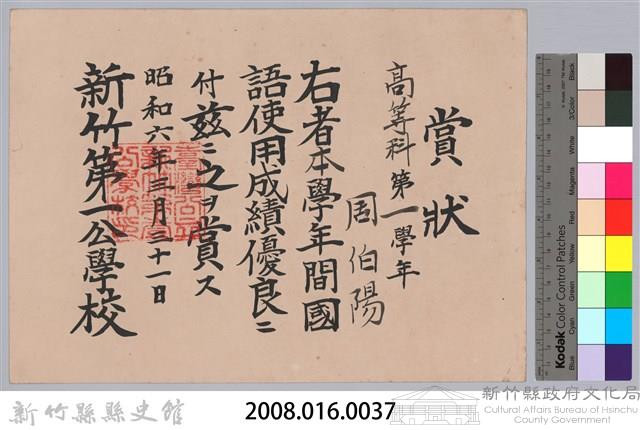 賞狀
高等科第一學年
周伯陽
右者本學年間國
語使用成績優良ニ
付茲ニ之ヲ賞ス
昭和六年三月三十一日
新竹第一公學校
Black
3/Color
White
Magenta
Red
Yellow
Green
Cyan
Blue
Kodak Color Control Patches
新竹縣縣史館
2008.016.0037
新竹縣政府文化局
Cultural Affairs Bureau of Hsinchu
County Government